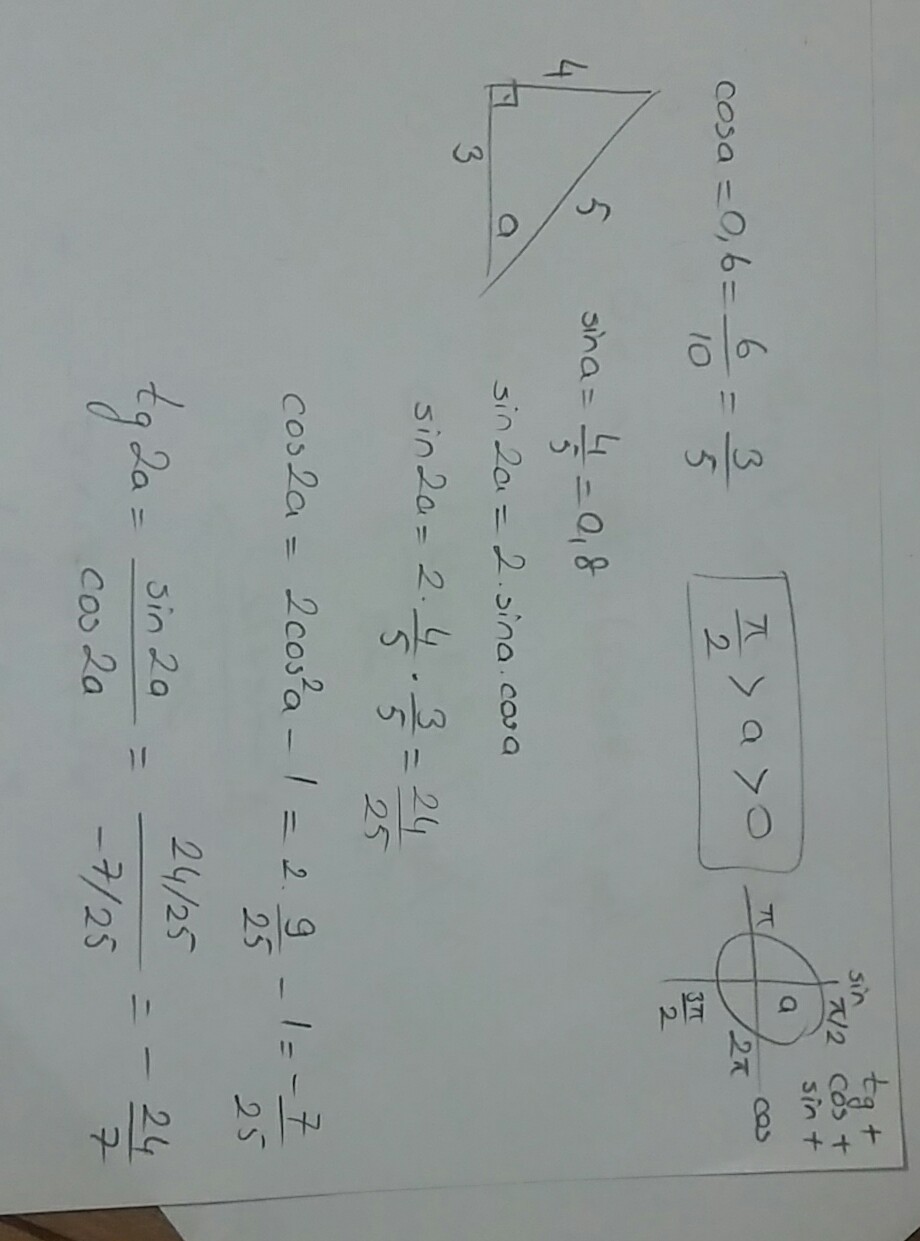 cosa = 0,6 = 6/10 = 3/5
π/2 > a > 0
sin
π/2
π
a
2π
3π/2
cos
tg +
cos +
sin +
4
5
3
a
sina = 4/5 = 0,8
sin2a = 2.sina.cosa
sin2a = 2 · 4/5 · 3/5 = 24/25
cos2a = 2cos²a - 1 = 2 · 9/25 - 1 = -7/25
tg2a = sin2a/cos2a = 24/25/-7/25 = -24/7